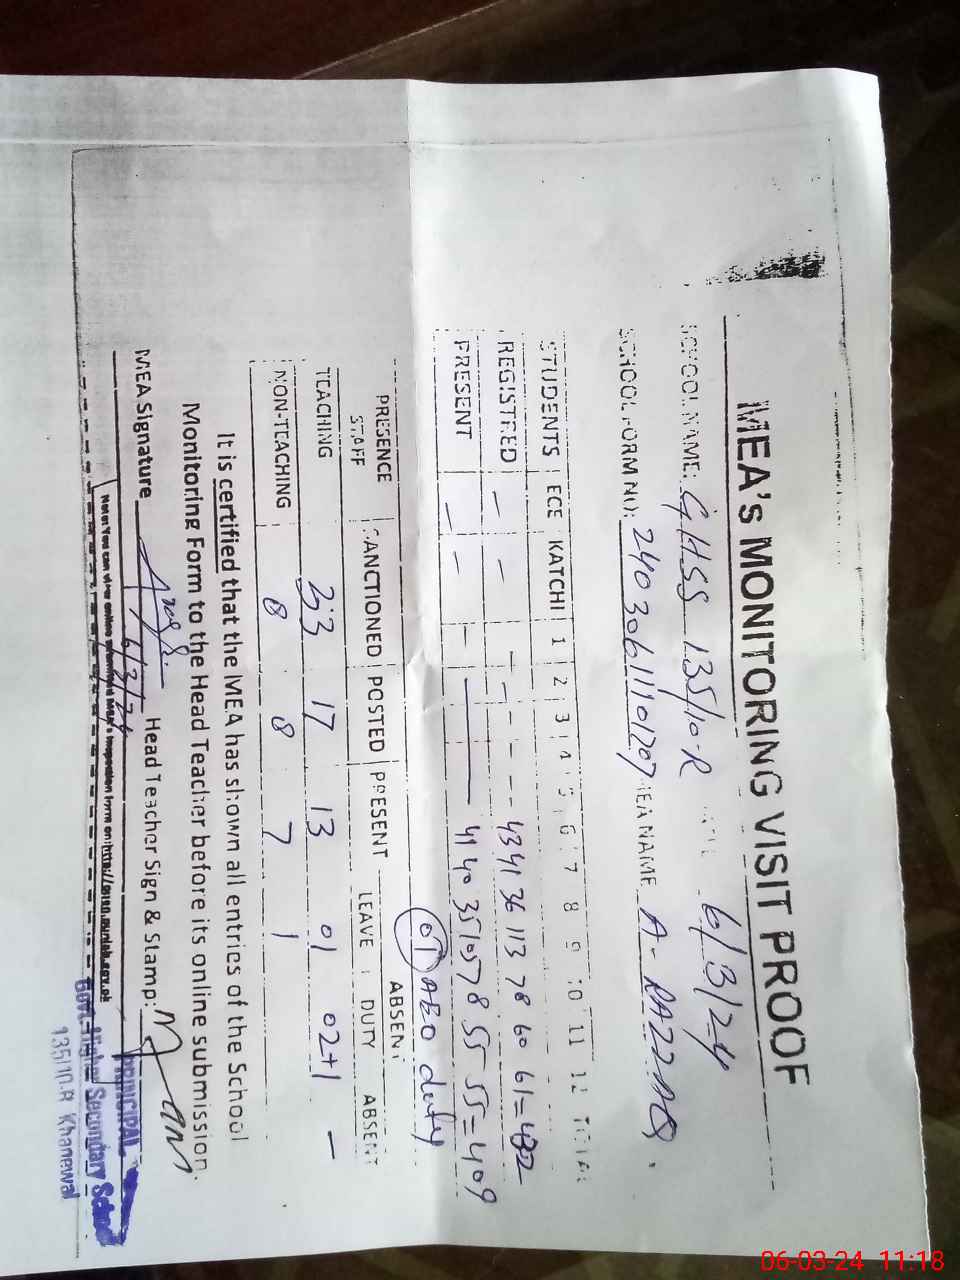 MEA's MONITORING VISIT PROOF
SCHOOL NAME: GHSS 135/10-R DATE 6/3/24
SCHOOL FORM NO: 24030611101207 MEA NAME A- RAZZAQ
STUDENTS ECE KATCHI 1 2 3 4 5 6 7 8 9 10 11 12 TOTAL
REGISTRED — — - - - - - 43 41 36 113 78 60 61=432
PRESENT — — — 41 40 35 105 78 55 55=409
01 ABO duty
PRESENCE STAFF SANCTIONED POSTED PRESENT ABSENT
LEAVE DUTY ABSENT
TEACHING 33 17 13 01 02+1 —
NON-TEACHING 8 8 7 1
It is certified that the MEA has shown all entries of the School
Monitoring Form to the Head Teacher before its online submission.
MEA Signature Head Teacher Sign & Stamp:
6/3/24
Note: You can view online submitted MEA's inspection form on http://
PRINCIPAL
Govt. Higher Secondary School
135/10.R Khanewal
06-03-24 11:18